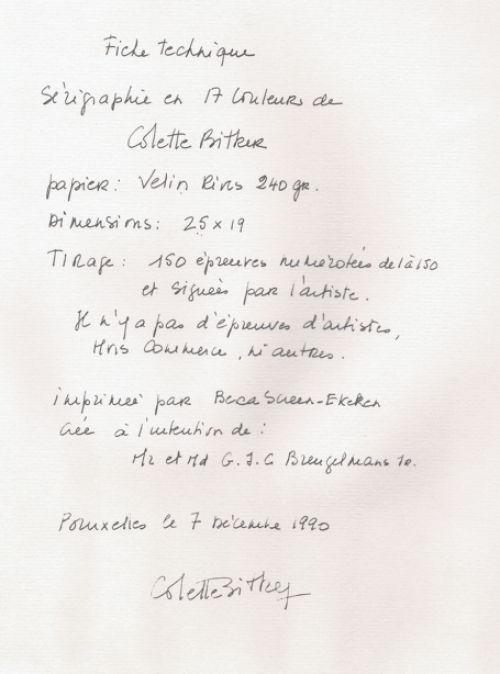 Fiche technique
Sérigraphie en 17 couleurs de
Colette Bitker
papier: Velin Rives 240 gr.
Dimensions: 25 x 19
Tirage: 150 épreuves numérotées de 1 à 150
et signées par l'artiste.
Il n'y a pas d'épreuves d'artistes,
Hors Commerce, ni autres.
imprimée par Beca Screen-Ekeren
créé à l'intention de:
Mr et Md G. J. C Brengelmans
Bruxelles le 7 Décembre 1990
Colette Bitker